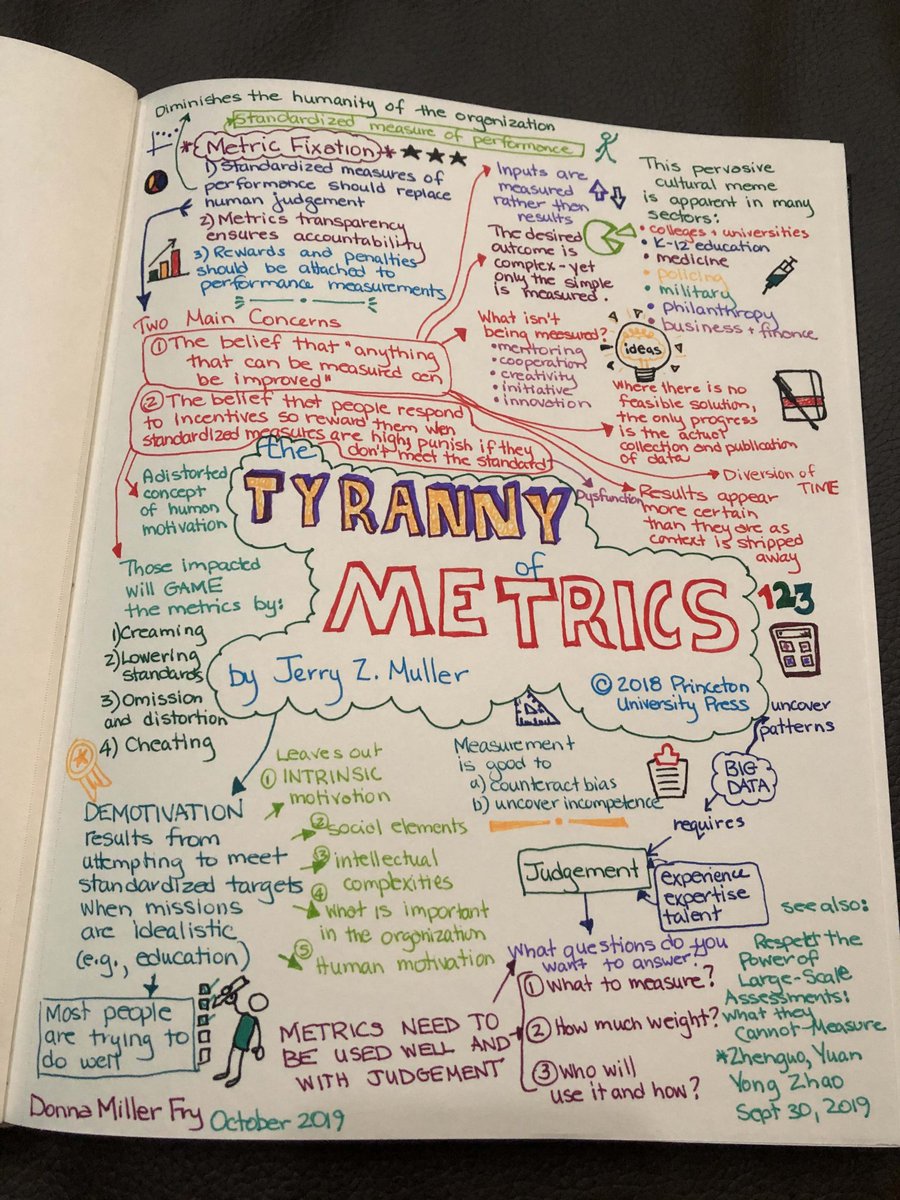 Diminishes the humanity of the organization
*Standardized measure of performance
*Metric Fixation*
1) Standardized measures of
performance should replace
human judgement
2) Metrics transparency
ensures accountability
3) Rewards and penalties
should be attached to
performance measurements
Inputs are
measured
rather then
results
The desired
outcome is
complex-yet
only the simple
is measured.
This pervasive
cultural meme
is apparent in many
sectors:
• colleges + universities
• K-12 education
• medicine
• policing
• military
• philanthropy
• business + finance
Two Main Concerns
① The belief that "anything
that can be measured can
be improved"
② The belief that people respond
to incentives so reward them when
standardized measures are high, punish if they
don't meet the standard!
What isn't
being measured?
• mentoring
• cooperation
• creativity
• initiative
• innovation
ideas
where there is no
feasible solution,
the only progress
is the actual
collection and publication
of data
Diversion of
TIME
Dysfunction
Results appear
more certain
than they are as
context is stripped
away
123
A distorted
concept
of human
motivation
the
TYRANNY
of
METRICS
by Jerry Z. Muller
© 2018 Princeton
University Press
Those impacted
will GAME
the metrics by:
1) Creaming
2) Lowering
standards
3) Omission
and distortion
4) Cheating
DEMOTIVATION
results from
attempting to meet
standardized targets
when missions
are idealistic
(e.g., education)
Most people
are trying to
do well
Leaves out
① INTRINSIC
motivation
② social elements
③ intellectual
complexities
④ What is important
in the organization
⑤ Human motivation
Measurement
is good to
a) counteract bias
b) uncover incompetence
uncover
patterns
BIG
DATA
requires
Judgement
experience
expertise
talent
What questions do you
want to answer?
① What to measure?
② How much weight?
③ Who will
use it and how?
METRICS NEED TO
BE USED WELL AND
WITH JUDGEMENT
see also:
Respect the
Power of
Large-Scale
Assessments:
What they
Cannot Measure
*Zhenguo, Yuan
Yong Zhao
Sept 30, 2019
Donna Miller Fry
October 2019